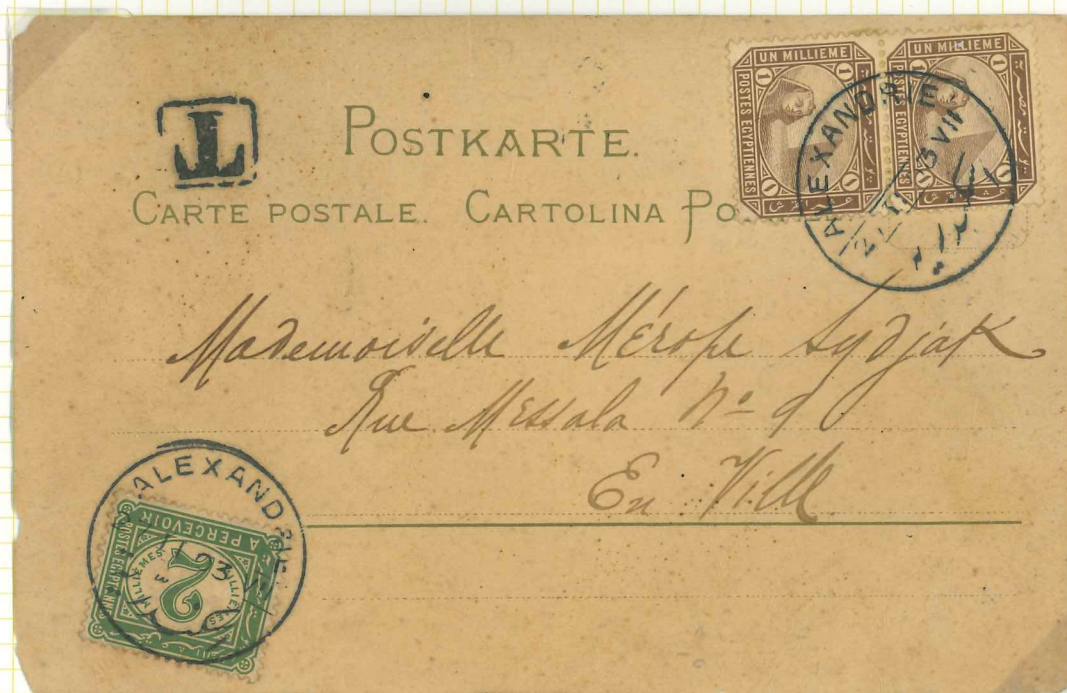 T
POSTKARTE.
CARTE POSTALE. CARTOLINA PO
UN MILLIEME
POSTES EGYPTIENNES
1 1 1 1
UN MILLIEME
POSTES EGYPTIENNES
1
ALEXANDRIE
VII
Mademoiselle Mérope Sydjak
Rue Messala No 9
En Ville
ALEXANDRIE
A PERCEVOIR
POSTES EGYPTIENNES
2
MILLIEMES MILLIEMES